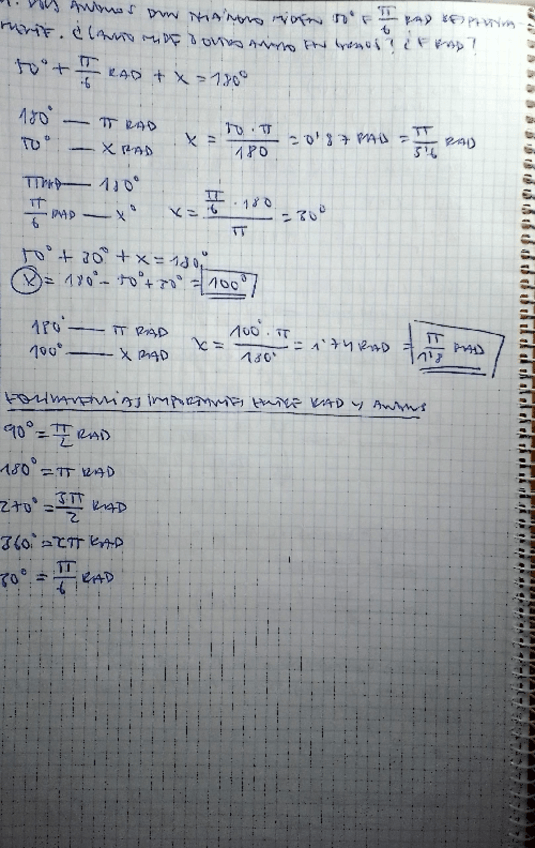 1. DOS ANGULOS DUN TRIÁNGULO MIDEN 50° E π/6 RAD RESPECTIVA-
MENTE. ¿CANTO MIDE O OUTRO ANGULO EN GRAOS? ¿E RAD?
50° + π/6 RAD + X = 180°
180° — π RAD
50° — X RAD
X = 50 · π / 180 = 0'87 RAD = π/3'6 RAD
π RAD — 180°
π/6 RAD — X°
X = π/6 · 180 / π = 30°
50° + 30° + X = 180°
X = 180° - 50° + 30° = 100°
180° — π RAD
100° — X RAD
X = 100° · π / 180° = 1'74 RAD = π/1'8 RAD
EQUIVALENCIAS IMPORTANTES ENTRE RAD Y ANGULOS
90° = π/2 RAD
180° = π RAD
270° = 3π/2 RAD
360° = 2π RAD
30° = π/6 RAD